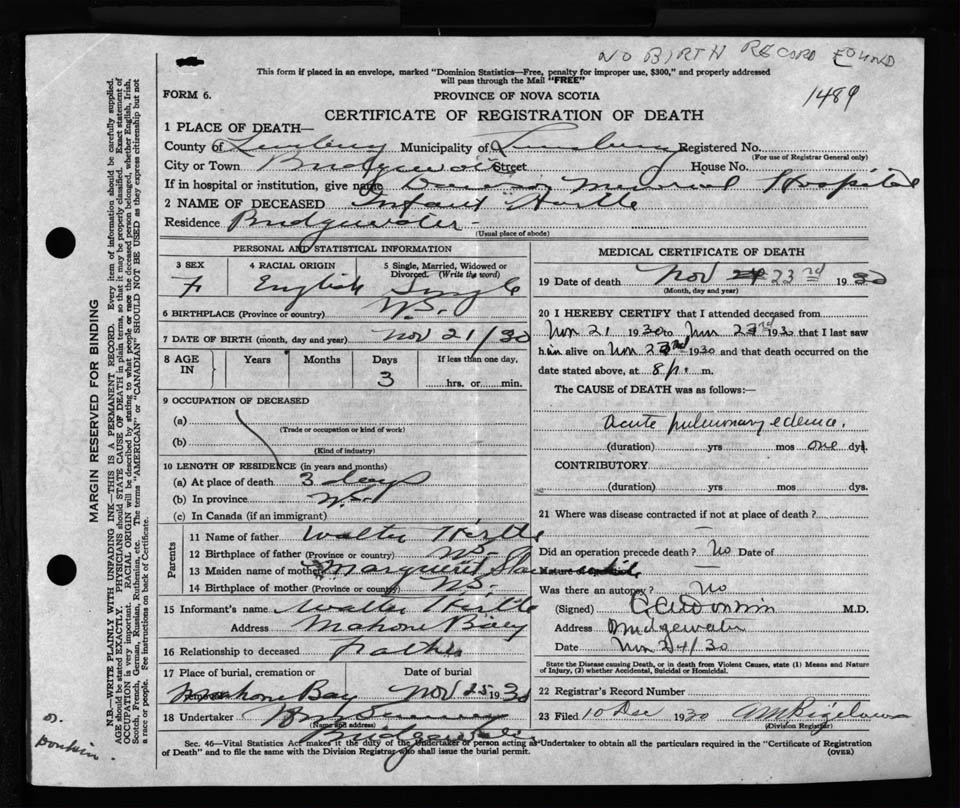 NO BIRTH RECORD FOUND
This form if placed in an envelope, marked "Dominion Statistics—Free, penalty for improper use, $300," and properly addressed
will pass through the Mail "FREE"
FORM 6.
PROVINCE OF NOVA SCOTIA
1489
CERTIFICATE OF REGISTRATION OF DEATH
1 PLACE OF DEATH—
County of Lunenburg Municipality of Lunenburg Registered No.
(For use of Registrar General only)
City or Town Bridgewater Street House No.
If in hospital or institution, give name Memorial Hospital
2 NAME OF DECEASED Infant Hirtle
Residence Bridgewater
(Usual place of abode)
PERSONAL AND STATISTICAL INFORMATION
3 SEX
F
4 RACIAL ORIGIN
English
5 Single, Married, Widowed or
Divorced. (Write the word)
Single
6 BIRTHPLACE (Province or country) N.S.
7 DATE OF BIRTH (month, day and year) Nov 21/30
8 AGE
IN
Years
Months
Days
3
If less than one day,
hrs. or min.
9 OCCUPATION OF DECEASED
(a)
(Trade or occupation or kind of work)
(b)
(Kind of industry)
10 LENGTH OF RESIDENCE (in years and months)
(a) At place of death 3 days
(b) In province N.S.
(c) In Canada (if an immigrant)
Parents
11 Name of father Walter Hirtle
12 Birthplace of father (Province or country) N.S.
13 Maiden name of mother
14 Birthplace of mother (Province or country) N.S.
15 Informant's name Walter Hirtle
Address Mahone Bay
16 Relationship to deceased Father
17 Place of burial, cremation or
Mahone Bay
Date of burial
Nov 25 1930
18 Undertaker
(Name and address)
Bridgewater
MEDICAL CERTIFICATE OF DEATH
19 Date of death Nov 23rd 1930
(Month, day and year)
20 I HEREBY CERTIFY that I attended deceased from
Nov 21 1930 to Nov 23rd 1930 that I last saw
him alive on Nov 23rd 1930 and that death occurred on the
date stated above, at 8 p. m.
The CAUSE of DEATH was as follows:—
Acute pulmonary edema.
(duration) yrs mos one dys.
CONTRIBUTORY
(duration) yrs. mos. dys.
21 Where was disease contracted if not at place of death?
Did an operation precede death? No Date of
Was there an autopsy? No
(Signed) M.D.
Address Bridgewater
Date Nov 24/30
State the Disease causing Death, or in death from Violent Causes, state (1) Means and Nature
of Injury, (2) whether Accidental, Suicidal or Homicidal.
22 Registrar's Record Number
23 Filed 10 Dec 1930
(Division Registrar)
Sec. 46—Vital Statistics Act makes it the duty of the Undertaker or person acting as Undertaker to obtain all the particulars required in the "Certificate of Registration
of Death" and to file the same with the Division Registrar who shall issue the burial permit.
(OVER)
MARGIN RESERVED FOR BINDING
N.B.—WRITE PLAINLY WITH UNFADING INK—THIS IS A PERMANENT RECORD. Every item of information should be carefully supplied.
AGE should be stated EXACTLY. PHYSICIANS should STATE CAUSE OF DEATH in plain terms, so that it may be properly classified. Exact statement of
OCCUPATION is very important. RACIAL ORIGIN will be described by stating to what people or race the deceased person belonged, whether English, Irish,
Scotch, French, German, Russian, Ruthenian, etc. The terms "AMERICAN" or "CANADIAN" SHOULD NOT BE USED as they express citizenship but not
a race or people. See instructions on back of Certificate.
Donkin.